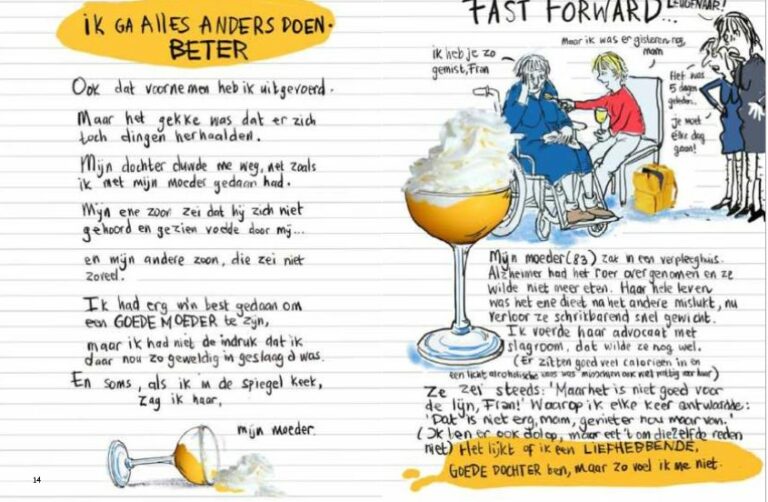 iK GA ALLES ANDERS DOEN.
BETER
Ook dat voornemen heb ik uitgevoerd.
Maar het gekke was dat er zich
toch dingen herhaalden.
Mijn dochter duwde me weg, net zoals
ik met mijn moeder gedaan had.
Mijn ene zoon zei dat hij zich niet
gehoord en gezien voelde door mij...
en mijn andere zoon, die zei niet
zoveel.
Ik had erg mijn best gedaan om
een GOEDE MOEDER te zijn,
maar ik had niet de indruk dat ik
daar nou zo geweldig in geslaagd was.
En soms, als ik in de spiegel keek,
zag ik haar,
mijn moeder.
14
FAST FORWARD...
LEUGENAAR!
ik heb je zo
gemist, Fran
Maar ik was er gisteren nog,
mam
Het was
5 dagen
geleden..
je moet
elke dag
gaan!
Mijn moeder (83) zat in een verpleeghuis.
Alzheimer had het roer overgenomen en ze
wilde niet meer eten. Haar hele leven
was het ene dieet na het andere mislukt, nu
verloor ze schrikbarend snel gewicht.
Ik voerde haar advocaat met
slagroom, dat wilde ze nog wel.
(Er zitten goed veel calorieën in en
een licht alcoholische roes was misschien ook niet nadelig voor haar)
Ze zei steeds: 'Maar het is niet goed voor
de lijn, Fran!' Waarop ik elke keer antwoordde:
'Dat is niet erg, mam, geniet er nou maar van.'
(Ik ben er ook dol op, maar eet 't om diezelfde reden
niet) Het lijkt of ik een LIEFHEBBENDE,
GOEDE DOCHTER ben, maar zo voel ik me niet.